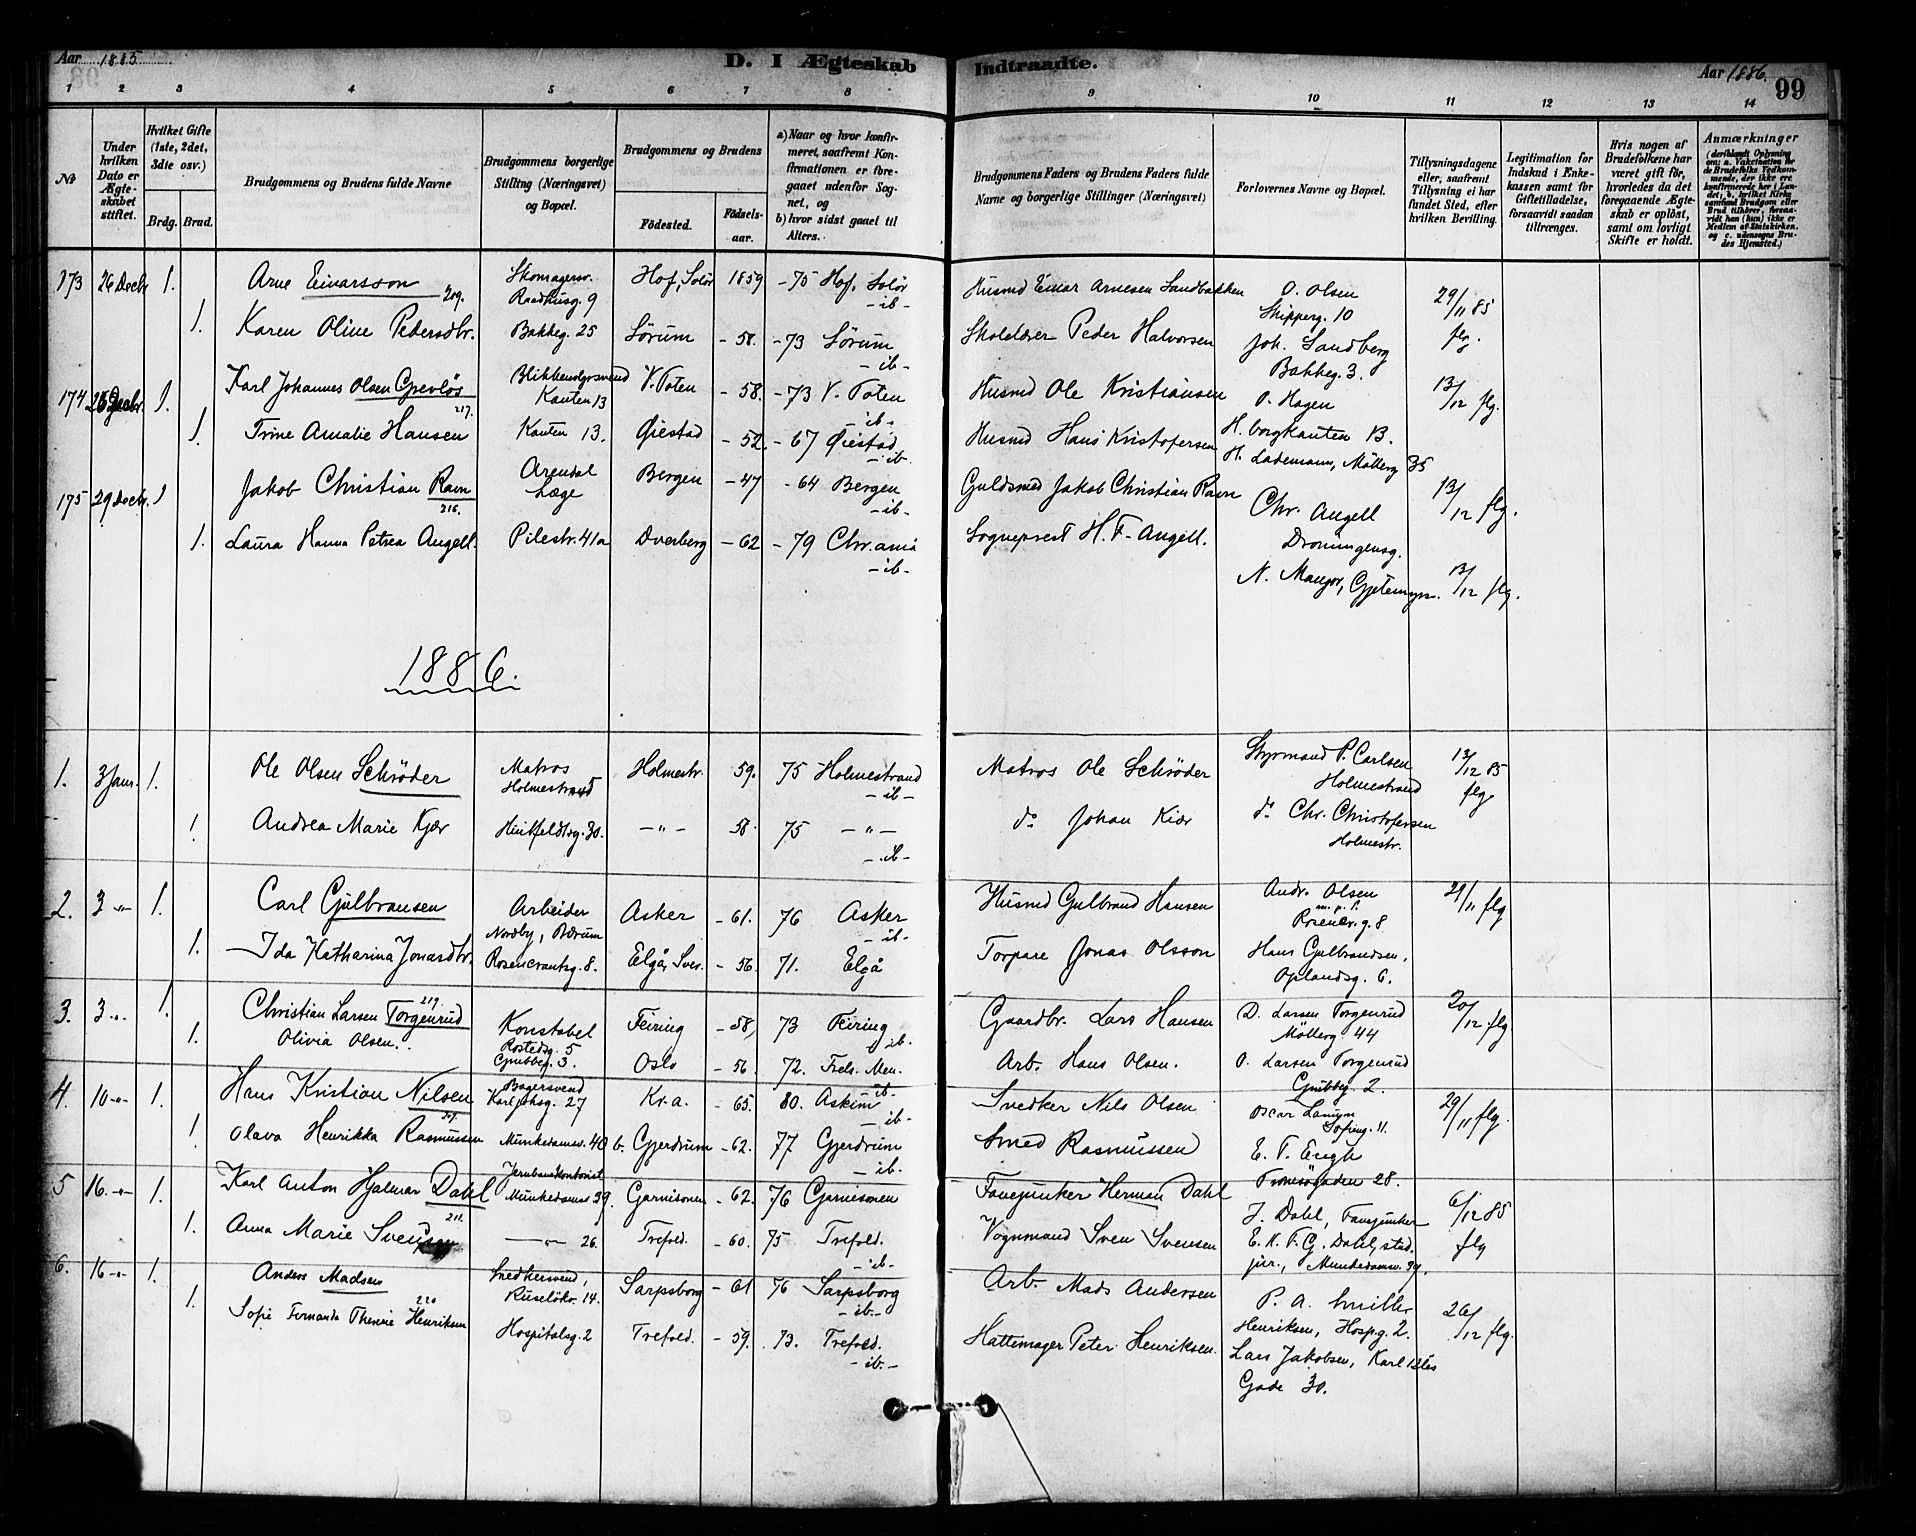 Aar 1885
D. I Ægteskab Indtraadte.
Aar 1886.
99
1 2 3 4 5 6 7 8 9 10 11 12 13 14
No
Under hvilken Dato er Ægteskabet stiftet.
Hvilket Gifte (1ste, 2det, 3die osv.)
Brdg. Brud.
Brudgommens og Brudens fulde Navne
Brudgommens borgerlige Stilling (Næringsvei) og Bopæl.
Brudgommens og Brudens
Födested. Födselsaar.
a) Naar og hvor konfirmeret, saafremt Konfirmationen er foregaaet udenfor Sognet, og
b) hvor sidst gaaet til Alters.
Brudgommens Faders og Brudens Faders fulde Navne og borgerlige Stillinger (Næringsvei)
Forlovernes Navne og Bopæl.
Tillysningsdagene eller, saafremt Tillysning ei har fundet Sted, efter hvilken Bevilling.
Legitimation for Indskud i Enkekassen samt for Giftetilladelse, forsaavidt saadan tiltrænges.
Hvis nogen af Brudefolkene har været gift før, hvorledes da det foregaaende Ægteskab er opløst, samt om lovligt Skifte er holdt.
Anmærkninger
173 26 Decbr 1. Arne Einarsson 209. Skomagersv. Raadhusg. 9 Hof, Solør 1859 - 75 Hof, Solør -ib- Husmd Einar Arnesen Sandbakken O. Olsen Skipperg. 10 29/11 85
1. Karen Oline Pedersdtr. Bakkeg. 25 Sørum - 58. - 73 Sørum -ib- Skolelærer Peder Halvorsen Joh. Sandberg Bakkeg. 3. flg.
174 1. Karl Johannes Olsen Grevløs 217. Kanten 13 V. Toten - 58. - 73 V. Toten -ib- Husmd Ole Kristiansen O. Hagen 13/12 flg.
1. Trine Amalie Hansen Kanten 13. Øiestad - 52. - 67 Øiestad -ib- Husmd Hans Kristofersen H. borgkanten 13. H. Lademann, Mölberg 35
175 29 Decbr. 1 Jakob Christian Ravn 216. Arendal Læge Bergen - 47 - 64 Bergen -ib- Guldsmed Jakob Christian Ravn Chr. Angell Dronningensg. 13/12 flg.
1. Laura Hanna Petrea Angell. Pilestr. 41a Dverberg - 62 - 79 Chr.ania -ib- Sogneprest H. F. Angell. N. 13/12 flg.
1886.
1. 3 Janr. 1. Ole Olsen Schrøder Matros Holmestrand Holmestr. 59. 75 Holmestrand -ib- Matros Ole Schrøder Styrmand P. Carlsen Holmestrand 13/12 85 flg.
1. Andrea Marie Kjær 30. -"- 58. 75 -"- -ib- do Johan Kiær do Chr. Christofersen Holmestr.
2. 3 -"- 1. Carl Gulbransen Arbeider Nordby, Bærum Asker - 61. 76 Asker -ib- Husmd Gulbrand Hansen Andr. Olsen m. p. P. Rosencr. g. 8 29/11 flg
1. Ida Katharina Jonasdtr. Rosencrantzg. 8. Elgå, Sver. - 56. 71. Elgå Torpare Jonas Olsson Hans Gulbrandsen, Oplandsg. 6.
3. 3 -"- 1. Christian Larsen Torgenrud 219. Konstabel Rostedsg. 5 Feiring - 58, 73 Feiring -ib- Gaardbr. Lars Hansen D. Larsen Torgenrud Mölberg. 44 20/12 flg
1. Olivia Olsen. Grubbeg. 3. Oslo - 56. 72. Frels. Men. -ib- Arb. Hans Olsen. O. Larsen Torgenrud Grubbeg. 2.
4. 10 -"- 1. Hans Kristian Nilsen Bagersvend Karl Johsg. 27 Kr.a. - 65. 80. Askim -ib- Snedker Nils Olsen Oscar Sofieng. 11. 29/11 flg.
1. Olava Henrikka Rasmussen Munkedamsv. 40 b. Gjerdrum - 62. 77 Gjerdrum -ib- Smed Rasmussen E. T. Engh Tromsøgaden 28.
5 16. -"- 1. Karl Anton Hjalmar Dahl 211. Jernbanekontorist Munkedamsv 39. Garnisonen - 62. 76 Garnisonen Fanejunker Herman Dahl J. Dahl, Fanejunker 6/12 85
1. Anna Marie Svensen -"- 26. Trefold. - 60. 75 Trefold. -ib- Vognmand Sven Svensen E. K. F. G. Dahl, stud. jur., Munkedamsv. 39. flg
6. 16 -"- 1. Anders Madsen 220 Snedkersvend, Ruseløkv. 14. Sarpsborg - 61 76 Sarpsborg -ib- Arb. Mads Andersen P. A. Henriksen, Hospg. 2. 26/12 flg.
1. Sofie Fernanda Therese Henriksen Hospitalsg. 2 Trefold. - 59. 73. Trefold. -ib- Hattemager Peter Henriksen. Lars Jakobsen, Karl 12tes Gade 30.